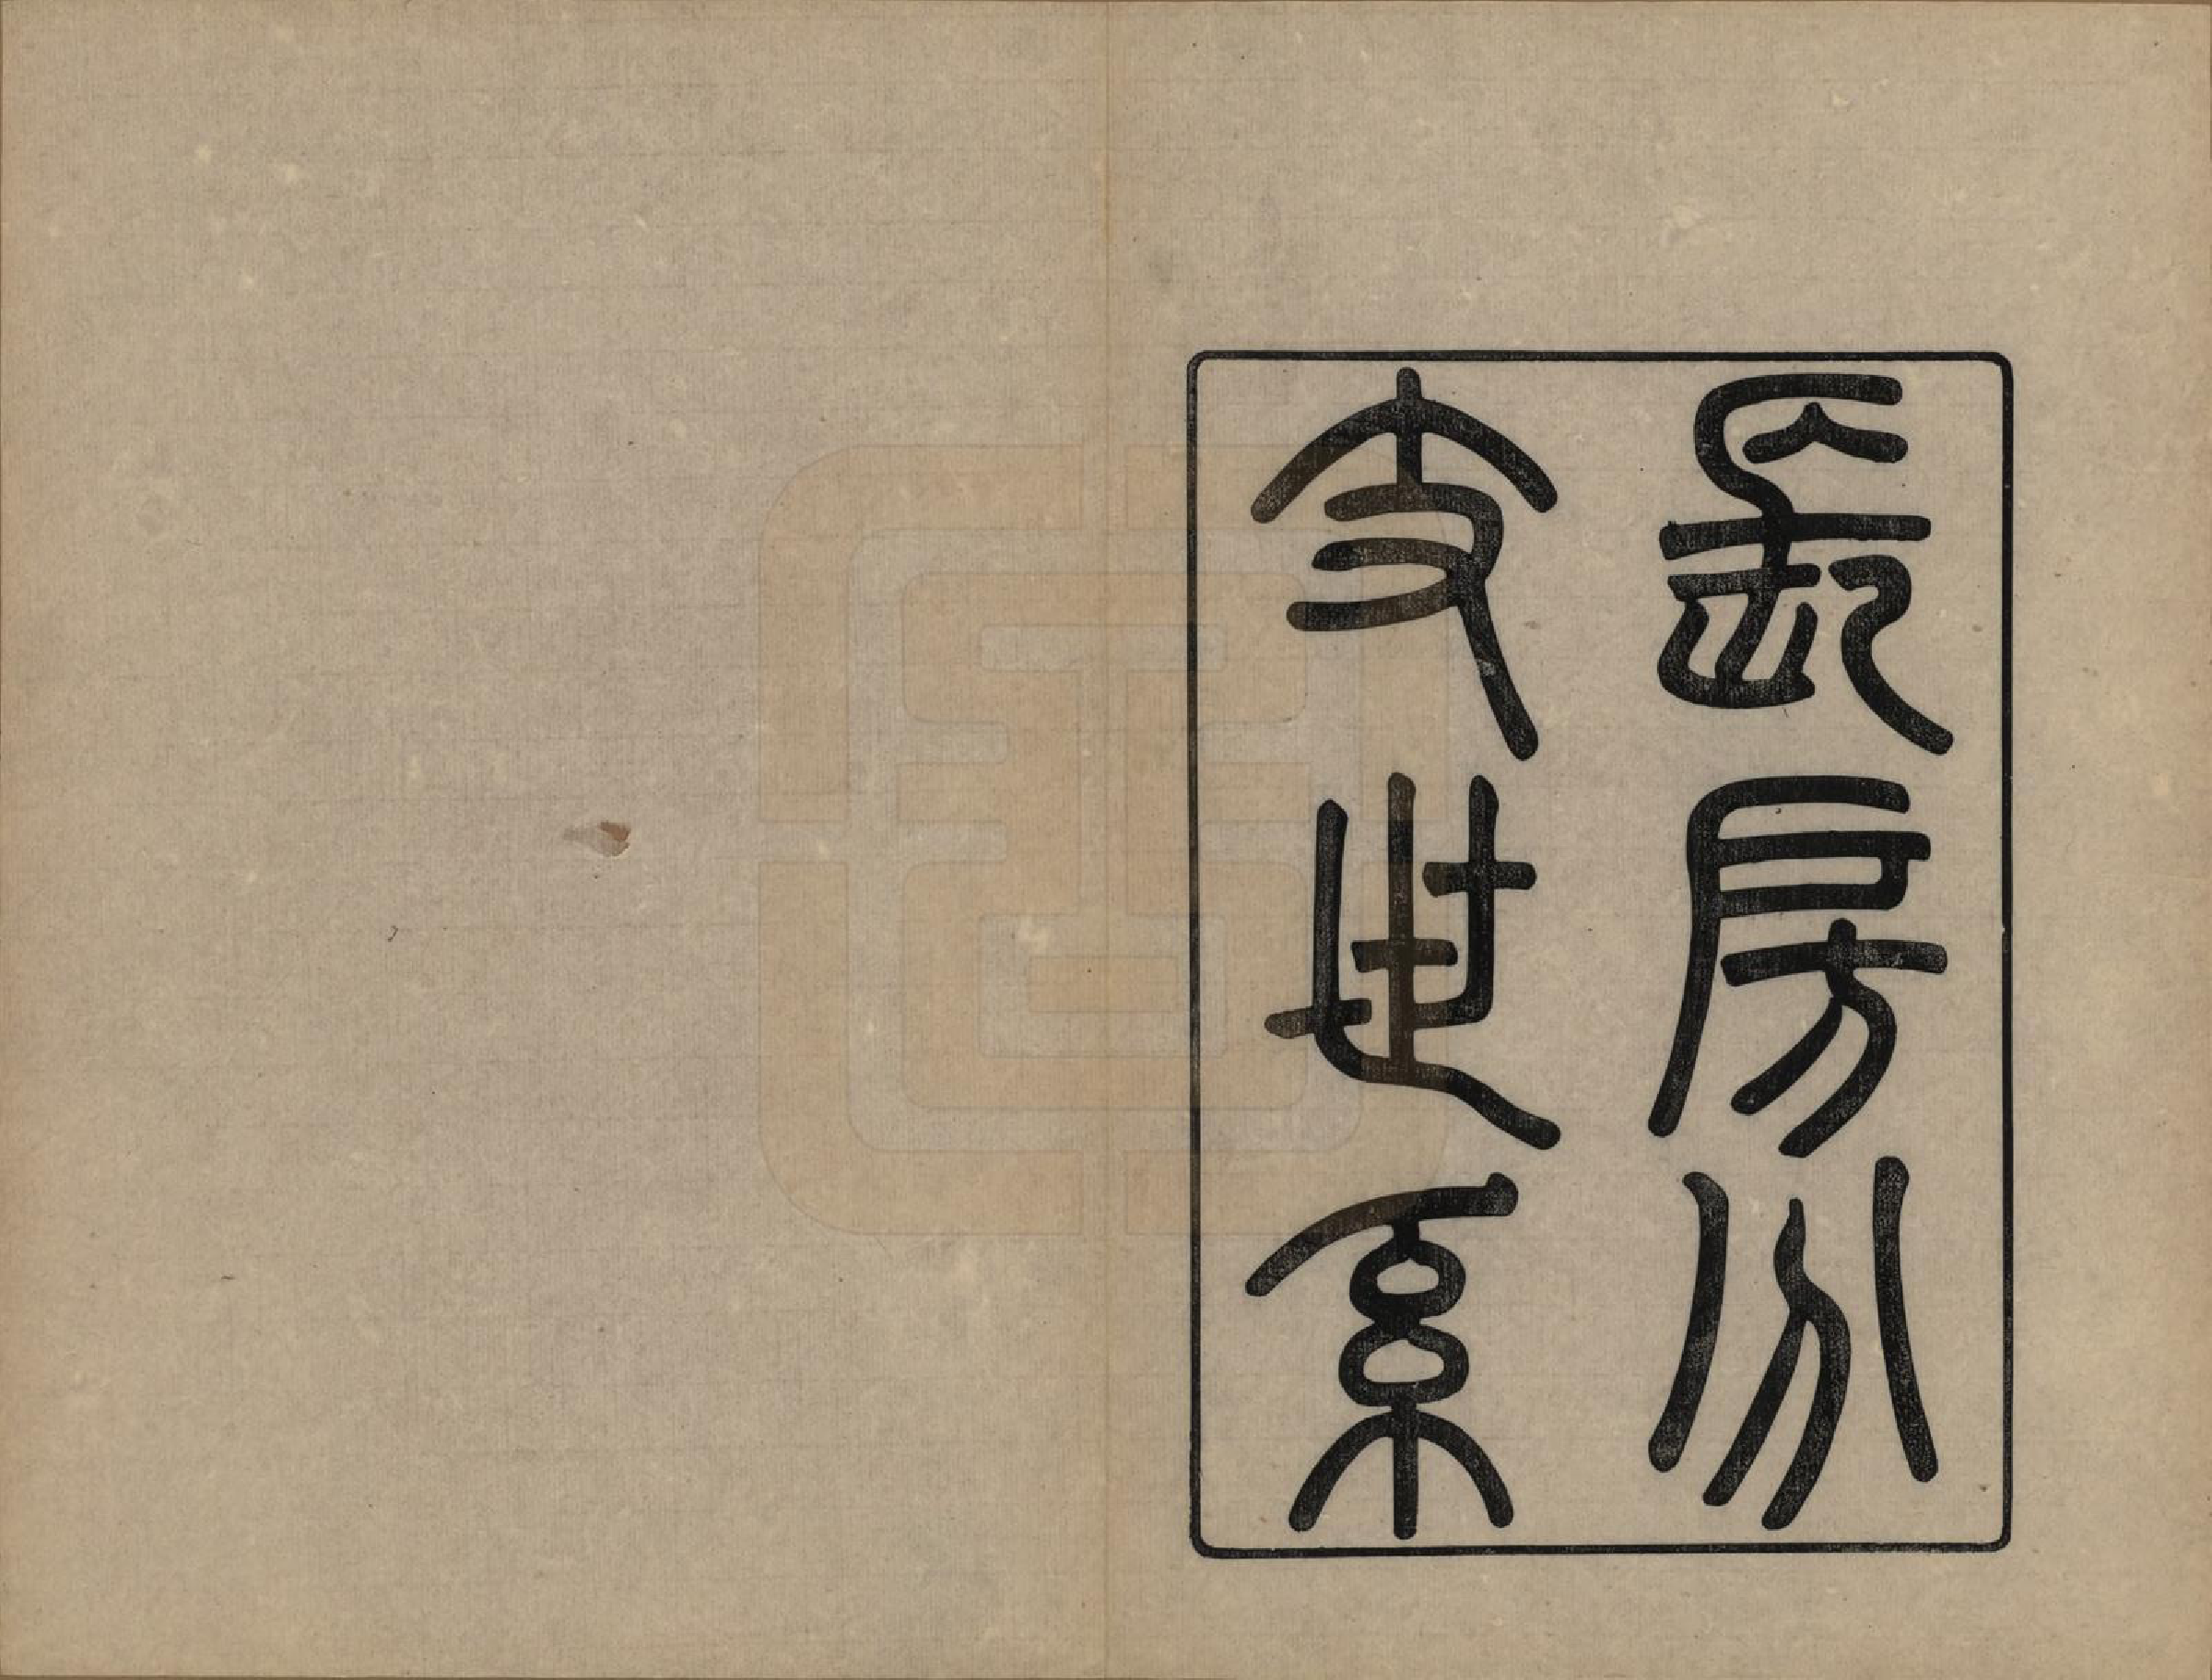 長房分
支世系